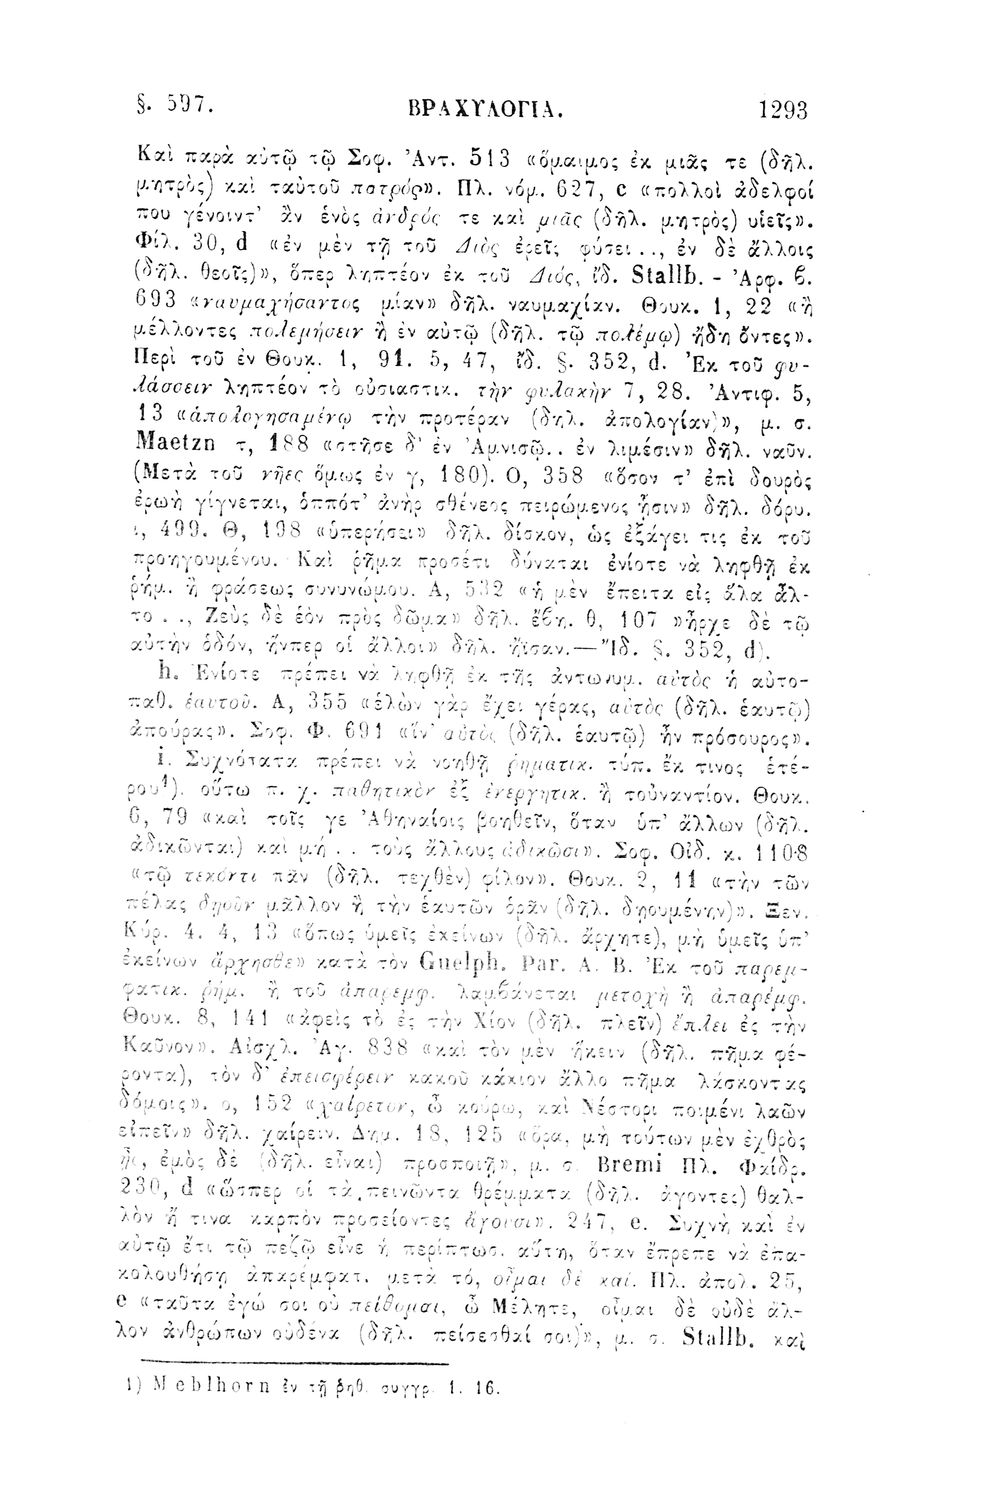 §. 597. ΒΡΑΧΥΛΟΓΙΑ. 1293
Καὶ παρὰ αὐτῷ τῷ Σοφ. Ἀντ. 513 «ὅμαιμος ἐκ μιᾶς τε (δῆλ.
μητρὸς) καὶ ταὐτοῦ πατρός». Πλ. νόμ. 627, c «πολλοὶ ἀδελφοί
που γένοιντ’ ἂν ἑνὸς ἀνδρός τε καὶ μιᾶς (δῆλ. μητρὸς) υἱεῖς».
Φίλ. 30, d «ἐν μὲν τῇ τοῦ Διὸς ἐρεῖς φύσει .., ἐν δὲ ἄλλοις
(δῆλ. θεοῖς)», ὅπερ ληπτέον ἐκ τοῦ Διός, ἴδ. Stallb. - Ἀρφ. β.
693 «ναυμαχήσαντος μίαν» δῆλ. ναυμαχίαν. Θουκ. 1, 22 «ἢ
μέλλοντες πολεμήσειν ἢ ἐν αὐτῷ (δῆλ. τῷ πολέμῳ) ἤδη ὄντες».
Περὶ τοῦ ἐν Θουκ. 1, 91. 5, 47, ἴδ. §. 352, d. Ἐκ τοῦ φυ-
λάσσειν ληπτέον τὸ οὐσιαστικ. τὴν φυλακὴν 7, 28. Ἀντιφ. 5,
13 «ἀπολογησαμένῳ τὴν προτέραν (δηλ. ἀπολογίαν)», μ. σ.
Maetzn τ, 188 «στῆσε δ’ ἐν Ἀμνισῷ.. ἐν λιμέσιν» δῆλ. ναῦν.
(Μετὰ τοῦ νῆες ὅμως ἐν γ, 180). Ο, 358 «ὅσον τ’ ἐπὶ δουρὸς
ἐρωὴ γίγνεται, ὁππότ’ ἀνὴρ σθένεος πειρώμενος ᾗσιν» δῆλ. δόρυ.
ι, 499. Θ, 198 «ὑπερήσει» δῆλ. δίσκον, ὡς ἐξάγει τις ἐκ τοῦ
προηγουμένου. Καὶ ῥῆμα προσέτι δύναται ἐνίοτε νὰ ληφθῇ ἐκ
ῥήμ. ἢ φράσεως συνυνώμου. Α, 532 «ἡ μὲν ἔπειτα εἰς ἅλα ἆλ-
το . ., Ζεὺς δὲ ἑὸν πρὸς δῶμα» δῆλ. ἔβη. θ, 107 »ἦρχε δὲ τῷ
αὐτὴν ὁδόν, ἥνπερ οἱ ἄλλοι» δῆλ. ἤϊσαν.— Ἴδ. §. 352, d).
h. Ἐνίοτε πρέπει νὰ ληφθῇ ἐκ τῆς ἀντωνυμ. αὐτὸς ἡ αὐτο-
παθ. ἑαυτοῦ. Α, 355 «ἑλὼν γὰρ ἔχει γέρας, αὐτὸς (δῆλ. ἑαυτῷ)
ἀπούρας». Σοφ. Φ. 691 «ἵν’ αὐτὸς (δῆλ. ἑαυτῷ) ἦν πρόσουρος».
i. Συχνότατα πρέπει νὰ νοηθῇ ῥηματικ. τύπ. ἔκ τινος ἑτέ-
ρου¹). οὕτω π. χ. παθητικὸν ἐξ ἐνεργητικ. ἢ τοὐναντίον. Θουκ.
6, 79 «καὶ τοῖς γε Ἀθηναίοις βοηθεῖν, ὅταν ὑπ’ ἄλλων (δῆλ.
ἀδικῶνται) καὶ μή . . τοὺς ἄλλους ἀδικῶσι». Σοφ. Οἰδ. κ. 1108
«τῷ τεκόντι πᾶν (δῆλ. τεχθὲν) φίλον». Θουκ. 2, 11 «τὴν τῶν
πέλας δῃοῦν μᾶλλον ἢ τὴν ἑαυτῶν ὁρᾶν (δῆλ. δῃουμένην)». Ξεν.
Κύρ. 4. 4, 13 «ὅπως ὑμεῖς ἐκείνων (δῆλ. ἄρχητε), μὴ ὑμεῖς ὑπ’
ἐκείνων ἄρχησθε» κατὰ τὸν Guelph. Par. A. B. Ἐκ τοῦ παρεμ-
φατικ. ῥήμ. ἢ τοῦ ἀπαρεμφ. λαμβάνεται μετοχὴ ἢ ἀπαρέμφ.
Θουκ. 8, 141 «ἀφεὶς τὸ ἐς τὴν Χίον (δῆλ. πλεῖν) ἔπλει ἐς τὴν
Καῦνον». Αἰσχλ. Ἀγ. 838 «καὶ τὸν μὲν ἥκειν (δῆλ. πῆμα φέ-
ροντα), τὸν δ’ ἐπεισφέρειν κακοῦ κάκιον ἄλλο πῆμα λάσκοντας
δόμοις». ο, 152 «χαίρετον, ὦ κούρω, καὶ Νέστορι ποιμένι λαῶν
εἰπεῖν» δῆλ. χαίρειν. Δημ. 18, 125 «ὅρα, μὴ τούτων μὲν ἐχθρὸς
ᾖς, ἐμὸς δὲ (δῆλ. εἶναι) προσποιῇ», μ. σ. Bremi Πλ. Φαίδρ.
230, d «ὥσπερ οἱ τὰ πεινῶντα θρέμματα (δῆλ. ἄγοντες) θαλ-
λὸν ἤ τινα καρπὸν προσείοντες ἄγουσι». 247, e. Συχνὴ καὶ ἐν
αὐτῷ ἔτι τῷ πεζῷ εἶνε ἡ περίπτωσ. αὕτη, ὅταν ἔπρεπε νὰ ἐπα-
κολουθήσῃ ἀπαρέμφατ. μετὰ τό, οἶμαι δὲ καί. Πλ. ἀπολ. 25,
e «ταῦτα ἐγώ σοι οὐ πείθομαι, ὦ Μέλητε, οἶμαι δὲ οὐδὲ ἄλ-
λον ἀνθρώπων οὐδένα (δῆλ. πείσεσθαί σοι)», μ. σ. Stallb. καὶ
1) Meblhorn ἐν τῇ ῥηθ. συγγρ. 1. 16.